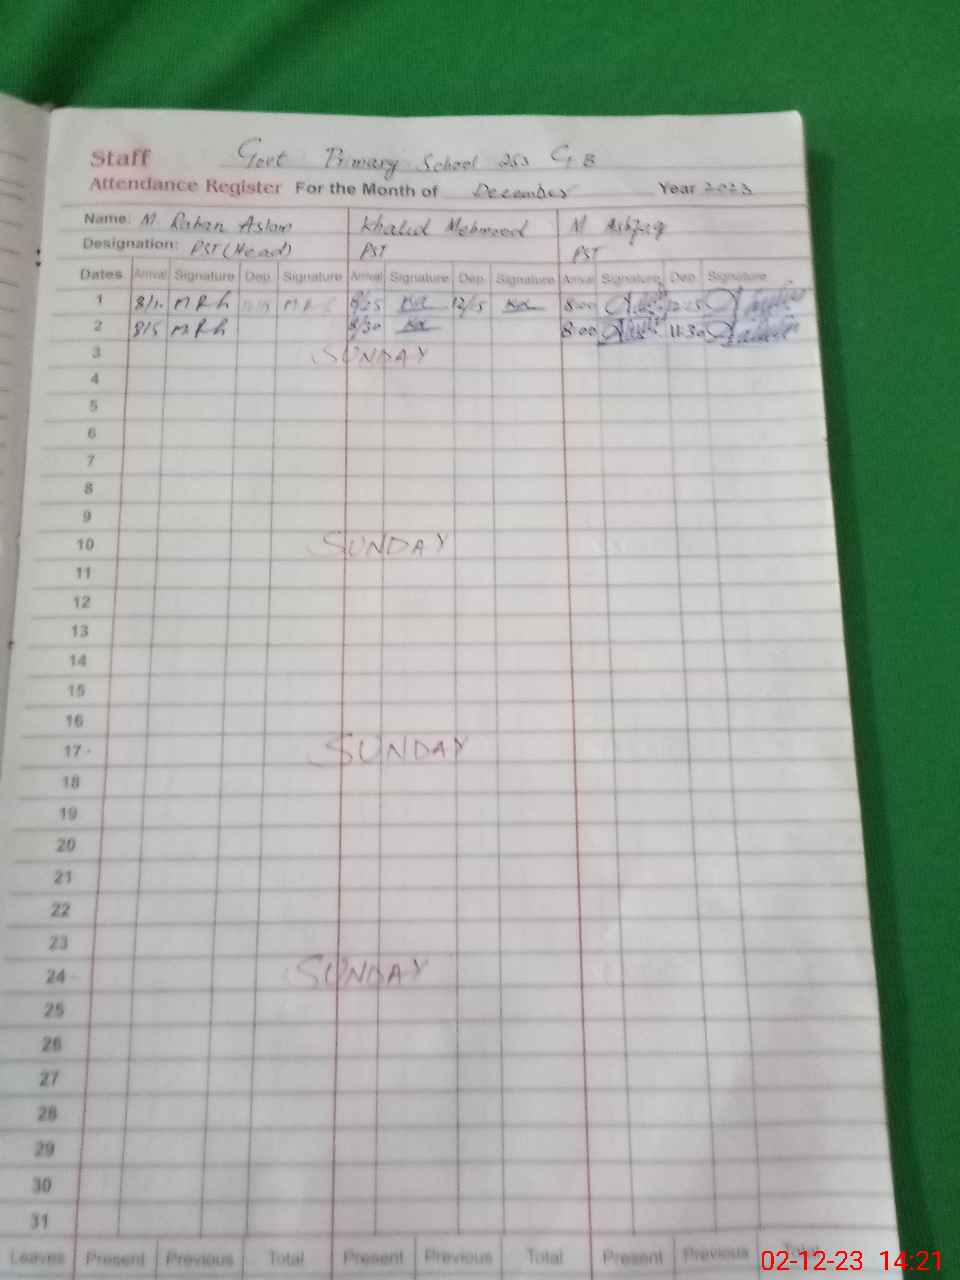 Staff Govt Primary School 253 G B
Attendance Register For the Month of December Year 2023
Name: M Rehan Aslam Khalid Mehmood M Ashfaq
Designation: PST (Head) PST PST
Dates Arrival Signature Dep. Signature Arrival Signature Dep. Signature Arrival Signature Dep. Signature
1 M R h M R h 8/25 12/15 8:00
2 8/5 M R h 8/30 8:00 11:30
3 SUNDAY
4
5
6
7
8
9
10 SUNDAY
11
12
13
14
15
16
17 SUNDAY
18
19
20
21
22
23
24 SUNDAY
25
26
27
28
29
30
31
Leaves Present Previous Total Present Previous Total Present Previous Total
02-12-23 14:21